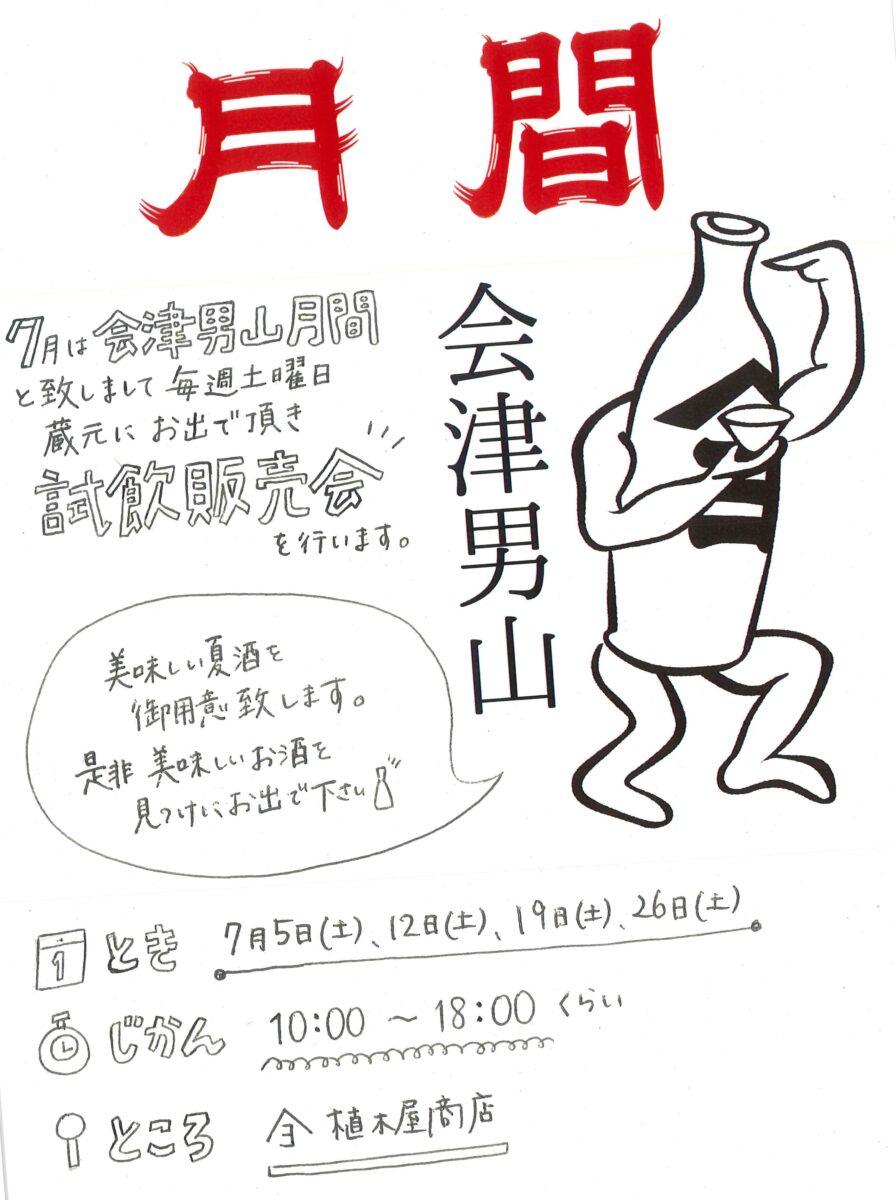 月間
会津男山
7月は会津男山月間
と致しまして毎週土曜日
蔵元にお出で頂き
試飲販売会
を行います。
美味しい夏酒を
御用意致します。
是非美味しいお酒を
見つけにお出で下さい
1
とき 7月5日(土)、12日(土)、19日(土)、26日(土)
じかん 10:00 〜 18:00 くらい
ところ 植木屋商店